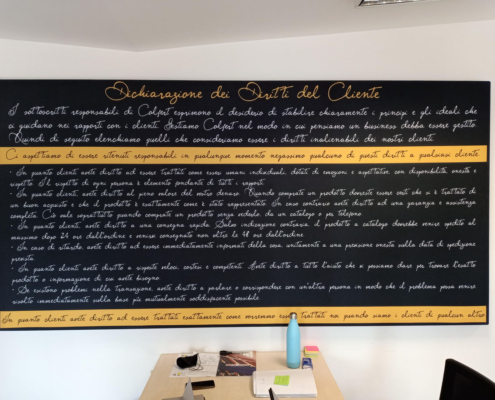 Dichiarazione dei Diritti del Cliente
I sottoscritti responsabili di Colfert esprimono il desiderio di stabilire chiaramente i principi e gli ideali che
ci guidano nei rapporti con i clienti. Gestiamo Colfert nel modo in cui pensiamo un business debba essere gestito.
Quindi di seguito elenchiamo quelli che consideriamo essere i diritti inalienabili dei nostri clienti.
Ci aspettiamo di essere ritenuti responsabili in qualunque momento negassimo qualcuno di questi diritti a qualsiasi cliente
• In quanto clienti avete diritto ad essere trattati come esseri umani individuali, dotati di emozioni e aspettative, con disponibilità, onestà e
rispetto. Il rispetto di ogni persona è elemento fondante di tutti i rapporti.
• In quanto clienti, avete diritto al pieno valore del vostro denaro. Quando comprate un prodotto dovreste essere certi che si è trattato di
un buon acquisto e che il prodotto è esattamente come è stato rappresentato. In caso contrario avete diritto ad una garanzia e assistenza
completa. Ciò vale soprattutto quando comprate un prodotto senza vederlo, da un catalogo o per telefono.
• In quanto clienti, avete diritto a una consegna rapida. Salvo indicazione contraria, il prodotto a catalogo dovrebbe venire spedito al
massimo dopo 24 ore dall'ordine e venire consegnato non oltre le 48 ore dall'ordine.
• In caso di ritardo, avete diritto ad essere immediatamente informati della cosa, unitamente a una previsione onesta sulla data di spedizione
prevista.
• In quanto clienti avete diritto a risposte veloci, cortesi e competenti. Avete diritto a tutto l'aiuto che vi possiamo dare per trovare l'esatto
prodotto o informazione di cui avete bisogno.
• Se esistono problemi nella transazione, avete diritto a parlare e corrispondere con un'altra persona in modo che il problema possa venire
risolto immediatamente sulla base più mutualmente soddisfacente possibile.
In quanto clienti avete diritto ad essere trattati esattamente come vorremmo essere trattati noi quando siamo i clienti di qualcun altro